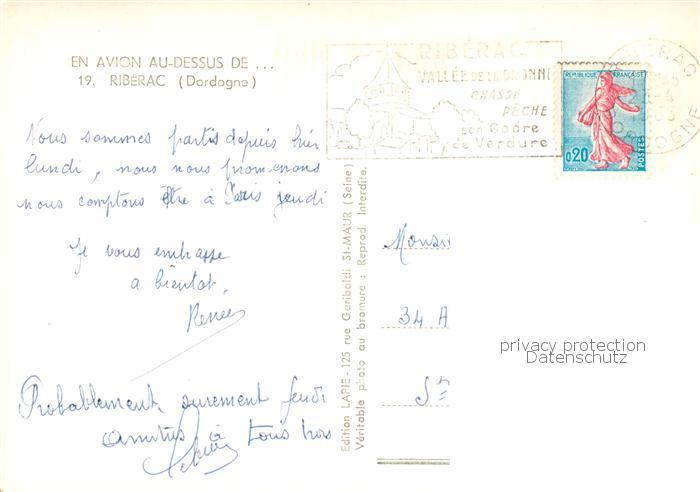 EN AVION AU-DESSUS DE ...
19. RIBÉRAC (Dordogne)
Nous sommes partis depuis hier
lundi, nous nous promenons
nous comptons être à Paris jeudi
Je vous embrasse
a bientot.
Renée
Probablement, surement jeudi
amitiés à tous trois
Edition LAPIE-125 rue Garibaldi St-MAUR (Seine)
Véritable photo au bromure : Reprod. Interdite.
RIBÉRAC
VALLÉE DE LA DRONNE
CHASSE
PÊCHE
son Cadre
de Verdure
REPUBLIQUE FRANÇAISE
0,20
POSTES
RIBERAC
DORDOGNE
Monsi
34 A
St
privacy protection
Datenschutz